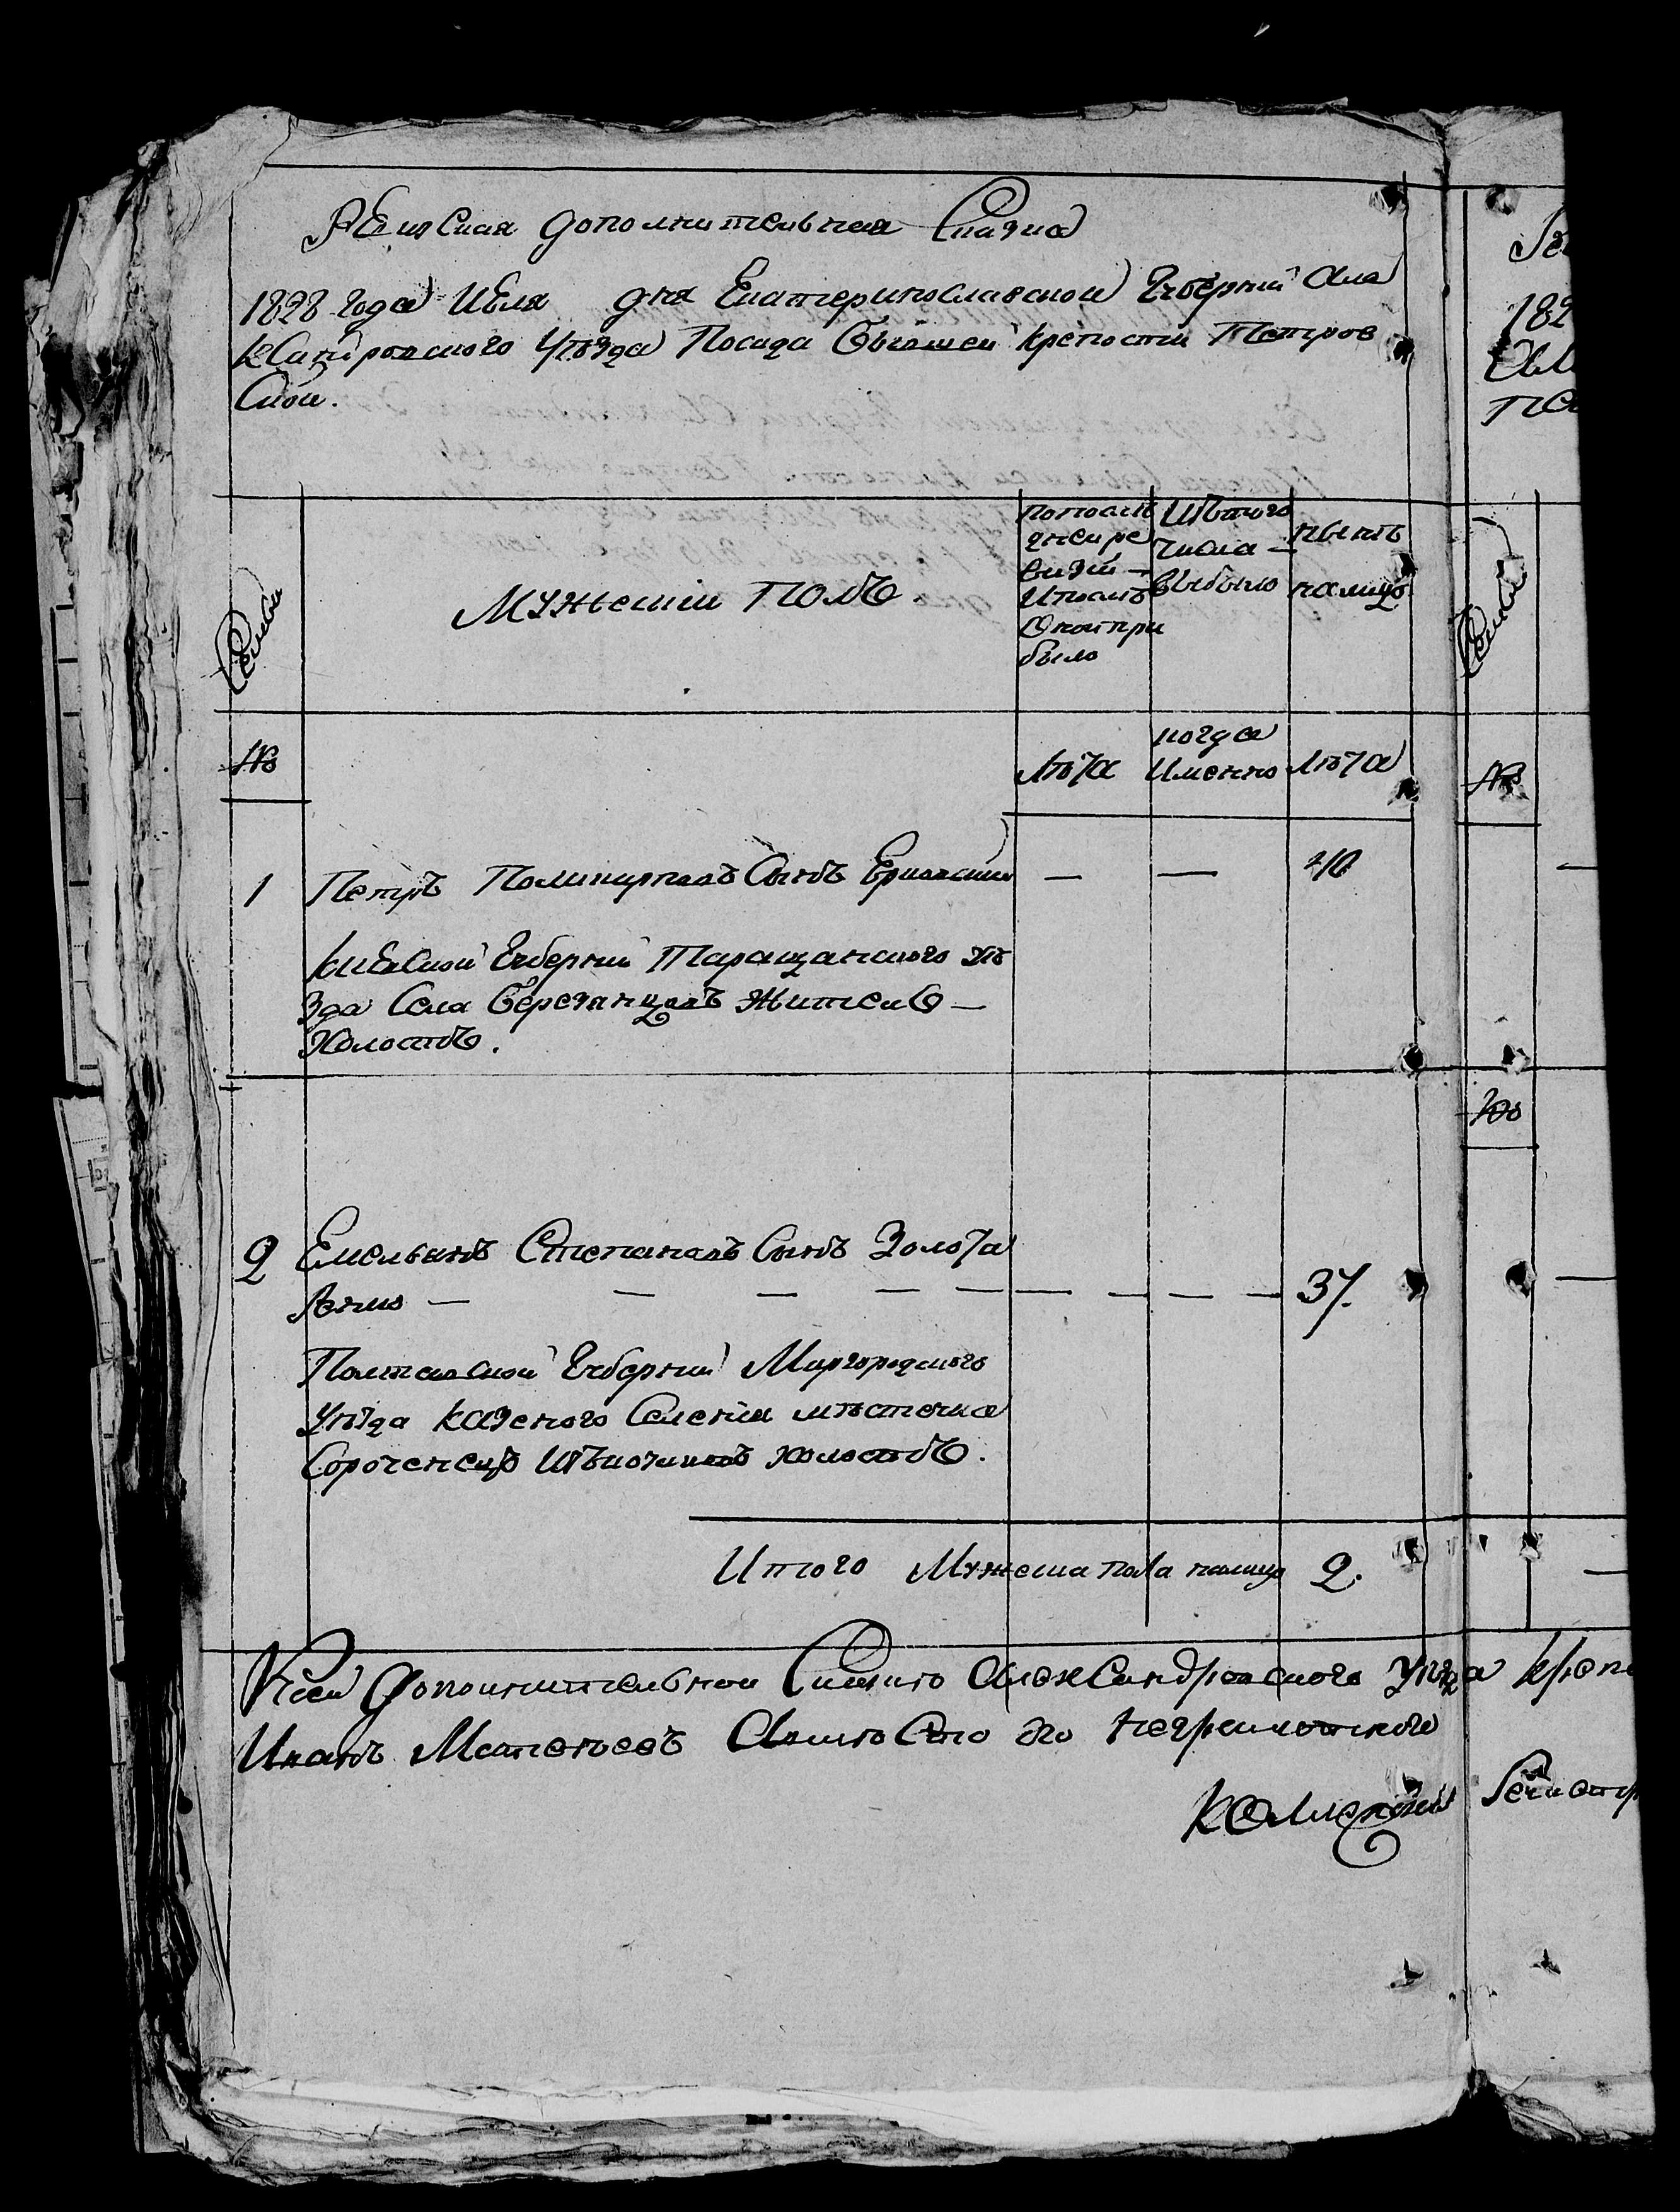 Ревизская дополнительная Сказка
1828 года Июля дня Екатеринославской Губернии Але
ксандровского Уѣзда Посада Бывшей крепости Петров
ской.
Семьи
Мужескiй Полъ
Попослѣ
дней ре
визiи —
Ипослѣ
Оной при
было
Изтого
числа —
выбыло
нынѣ
налицо
№
лѣта
когда
Именно
лѣта
1 Петръ Поликарповъ Сынъ — — 40
Кiевской Губернiи Таращанского уѣ
зда Села Березанцовъ житель —
Холостъ.
2 Емельянъ Степановъ Сынъ Золота
ренко — — — — — — — — — 37.
Полтавской Губернiи Миргородского
уѣзда казеного Селенiя мѣстечка
Сороченецъ холостъ.
Итого Мужеска пола налицо 2.
Ксей Дополнительной Скаскѣ Александровского уѣзда
Иванъ Матвѣевъ неграмотного
Колежскiй